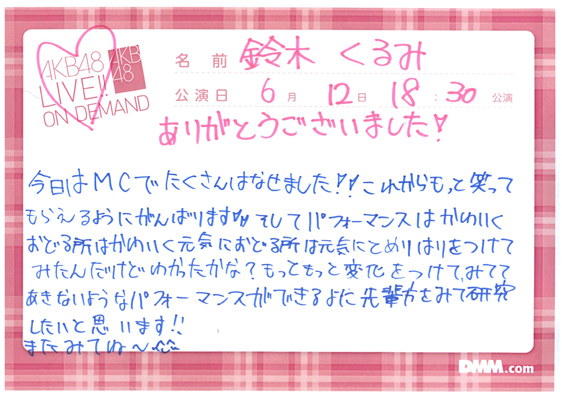 AKB48
LIVE!!
ON DEMAND
AKB
48
名前 鈴木 くるみ
公演日 6月 12日 18:30 公演
ありがとうございました!
今日はMCでたくさんはなせました!! これからもっと笑って
もらえるようにがんばります そしてパフォーマンスはかわいく
おどる所はかわいく元気におどる所は元気にとめりはりをつけて
みたんだけどわかったかな?もっともっと変化をつけて、みてて
あきないようなパフォーマンスができるように先輩方をみて研究
したいと思います!!
またみてね〜
DMM.com